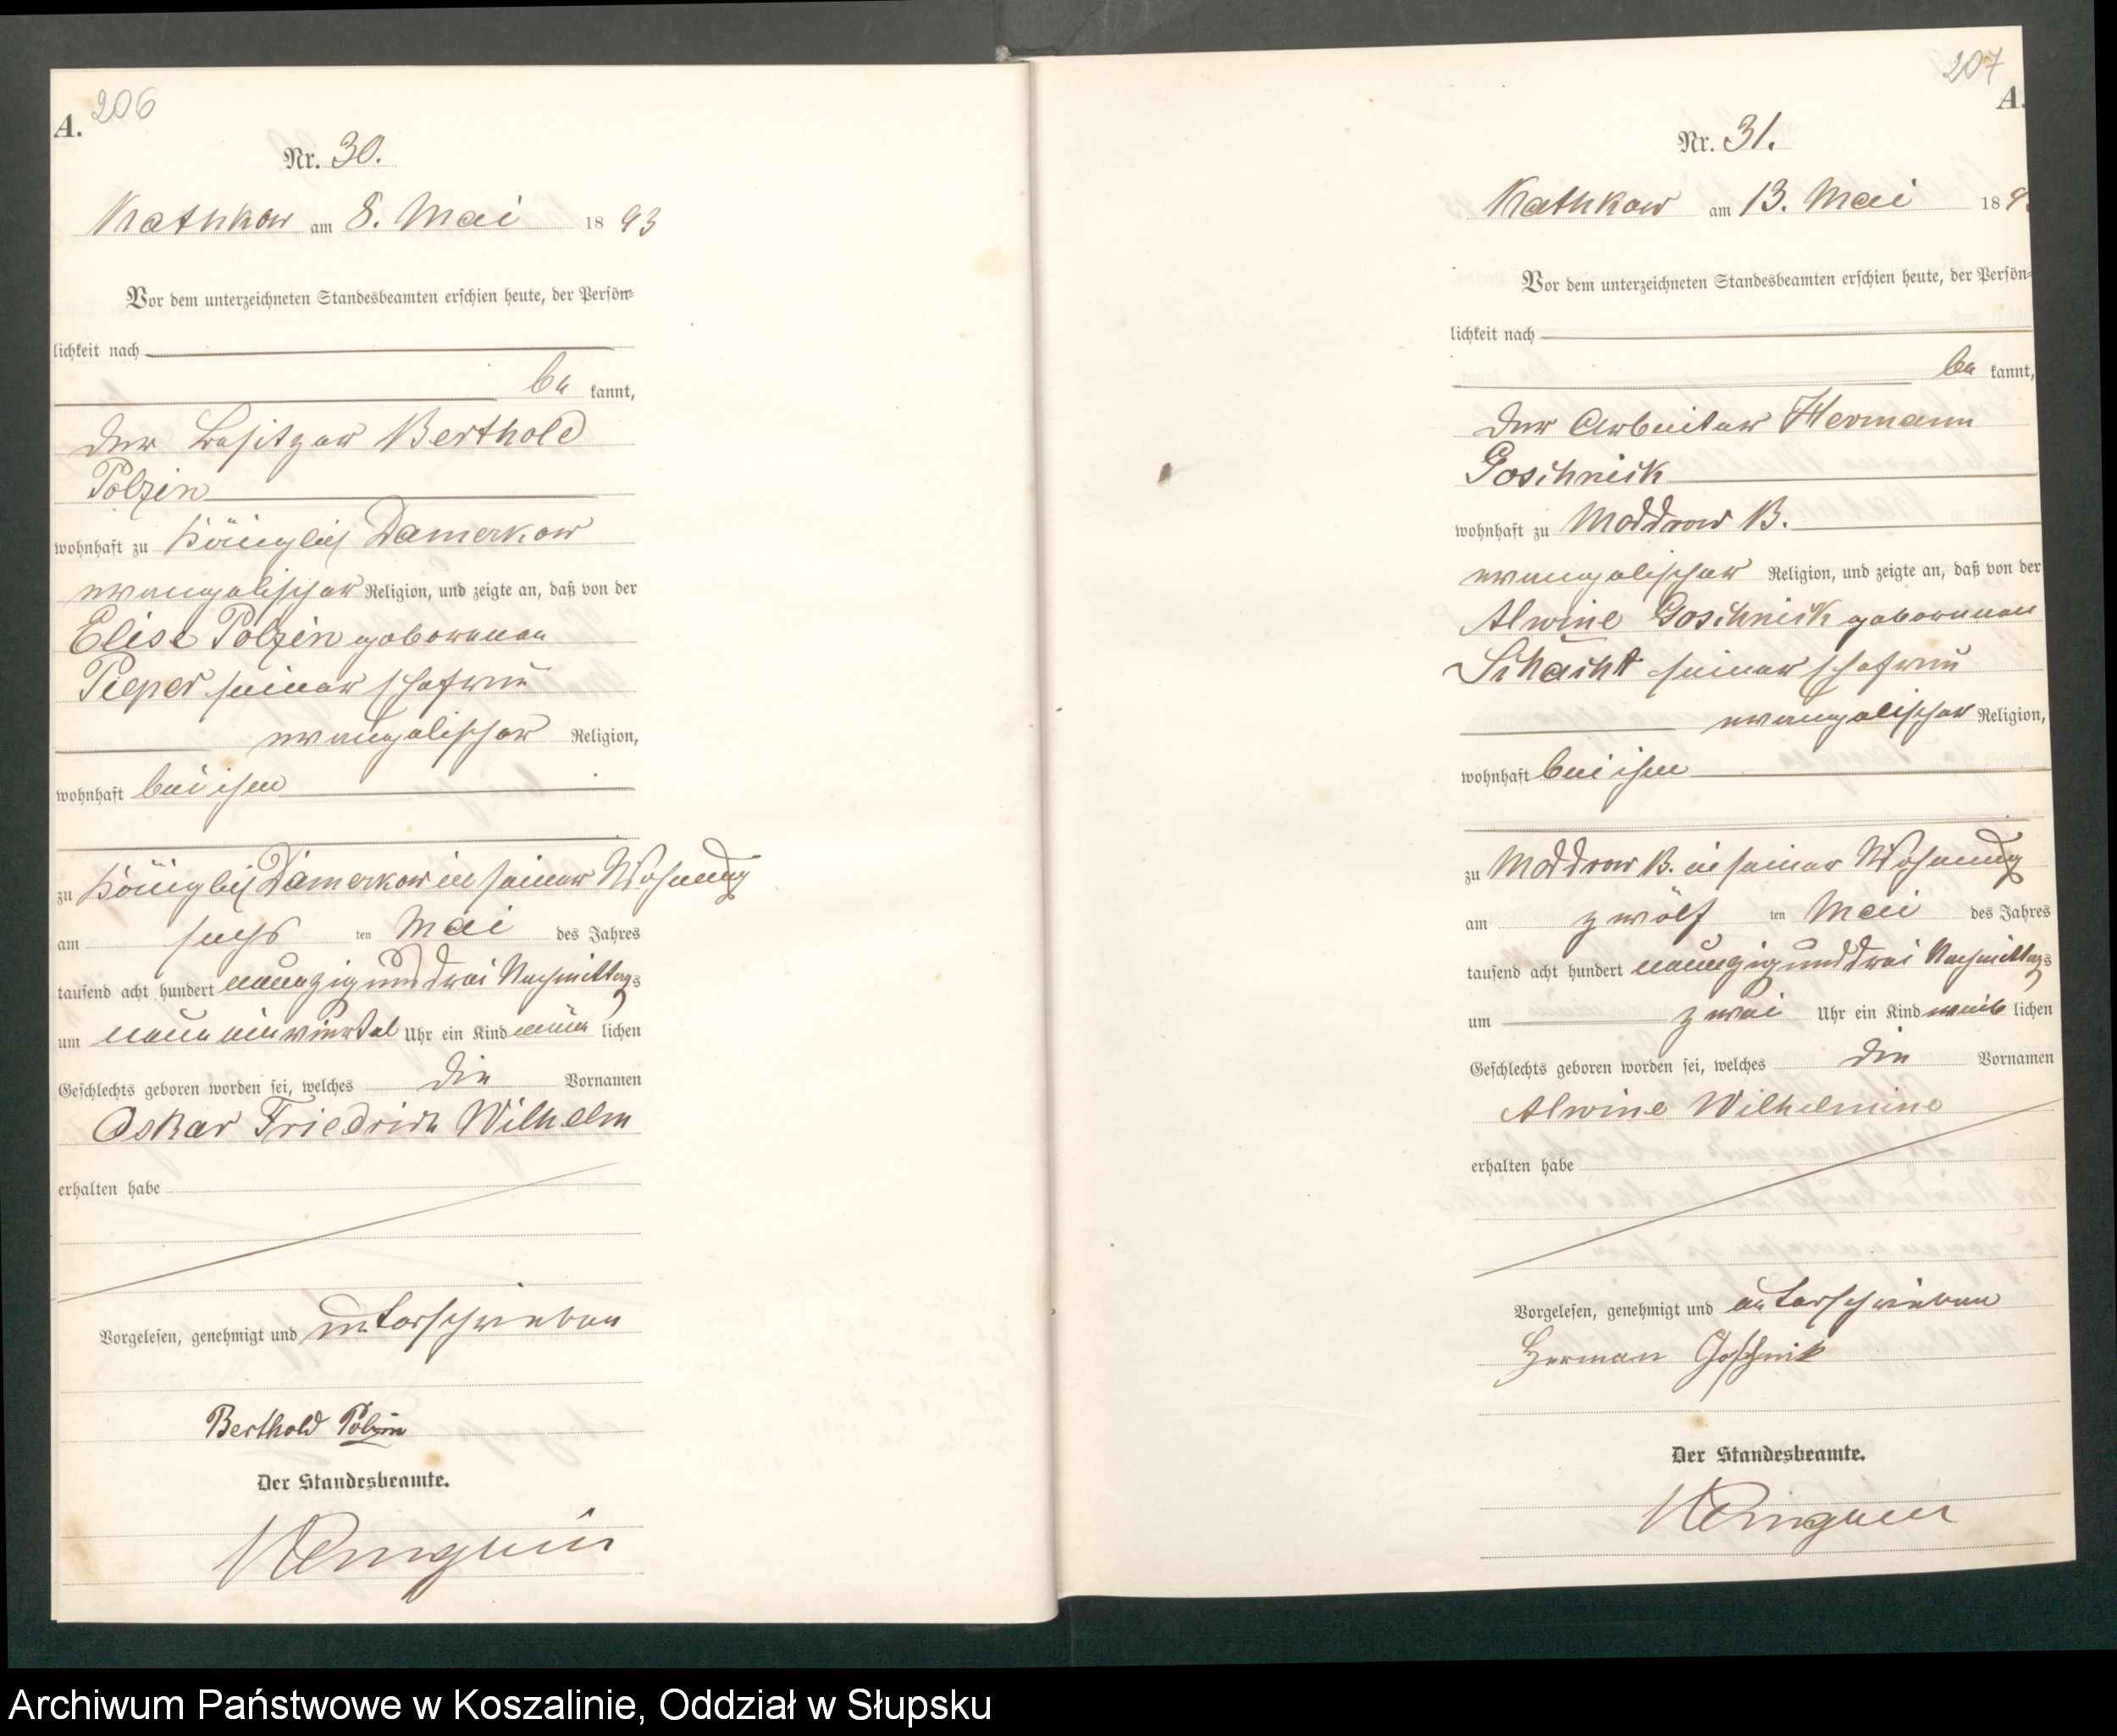 206
A.
Nr. 30.
Kathkow am 8. Mai 1893
Vor dem unterzeichneten Standesbeamten erschien heute, der Persön=
lichkeit nach
be kannt,
der Besitzer Berthold
Polzin
wohnhaft zu Königlich Damerkow
evangelischer Religion, und zeigte an, daß von der
Elise Polzin geborenen
Pieper seiner Ehefrau
evangelischer Religion,
wohnhaft bei ihm
zu Königlich Damerkow in seiner Wohnung
am sechs ten Mai des Jahres
tausend acht hundert neunzig und drei Nachmittags
um neun ein viertel Uhr ein Kind männ lichen
Geschlechts geboren worden sei, welches die Vornamen
Oskar Friedrich Wilhelm
erhalten habe
Vorgelesen, genehmigt und unterschrieben
Berthold Polzin
Der Standesbeamte.
207
A.
Nr. 31.
Kathkow am 13. Mai 189
Vor dem unterzeichneten Standesbeamten erschien heute, der Persön=
lichkeit nach
be kannt,
der Arbeiter Hermann
Goschnick
wohnhaft zu Moddrow B.
evangelischer Religion, und zeigte an, daß von der
Alwine Goschnick geborenen
Schacht seiner Ehefrau
evangelischer Religion,
wohnhaft bei ihm
zu Moddrow B. in seiner Wohnung
am zwölf ten Mai des Jahres
tausend acht hundert neunzig und drei Nachmittags
um zwei Uhr ein Kind weib lichen
Geschlechts geboren worden sei, welches die Vornamen
Alwine Wilhelmine
erhalten habe
Vorgelesen, genehmigt und unterschrieben
Herman Goschnik
Der Standesbeamte.
Archiwum Państwowe w Koszalinie, Oddział w Słupsku